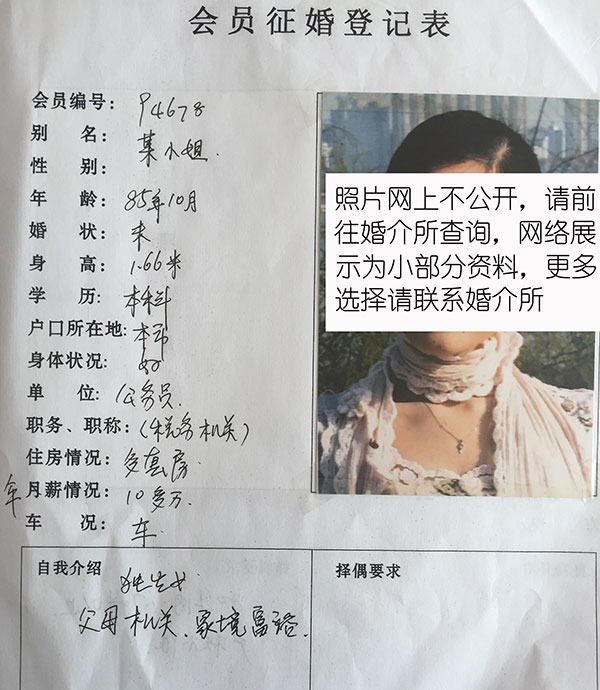 会员征婚登记表
会员编号: P4678
别名: 某小姐.
性别:
年龄: 85年10月
婚状: 未
身高: 1.66米
学历: 本科
户口所在地: 本市
身体状况: 好
单位: 公务员.
职务、职称: (税务机关)
住房情况: 多套房
年月薪情况: 10多万.
车况: 车.
照片网上不公开，请前
往婚介所查询，网络展
示为小部分资料，更多
选择请联系婚介所
自我介绍
独生女
父母机关、家境富裕.
择偶要求